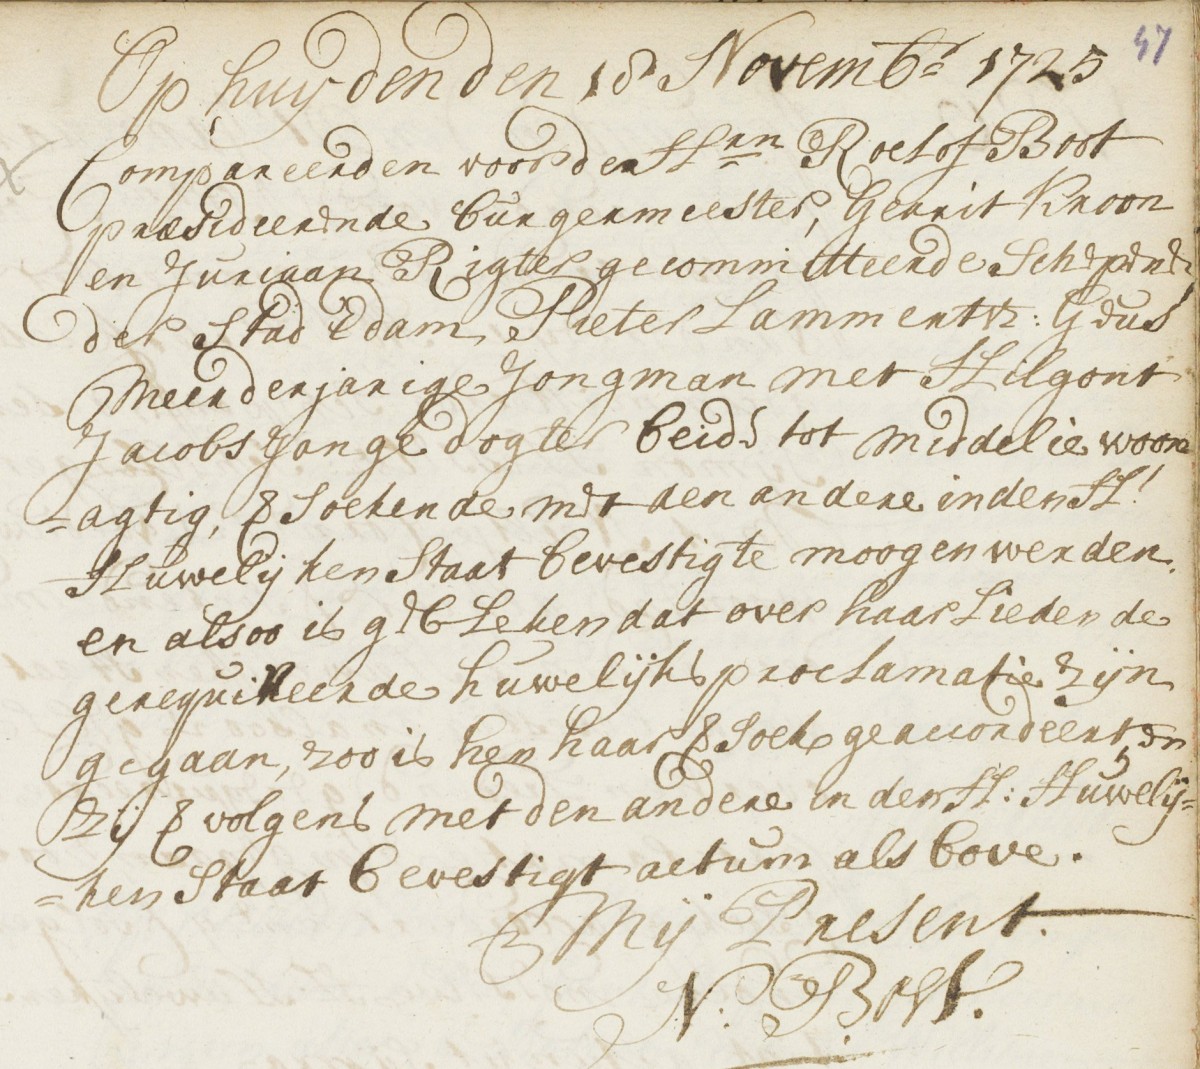 47
Op huyden den 18e Novembr 1725
Compareerden voor den Hrn Roelof Boot
præsideerende burgermeester, Gerrit Kroon
en Juriaan Rigter gecommitteerde Schepenen
der Stad Edam, Pieter Lammertsz:
Meerderjarige Jongman met Hilgont
Jacobs Jonge dogter beide tot middelie woon
=agtig, Soekende met den andere inden H!
Huwelijken Staat bevestigt moogen werden.
en alsoo is gebleken dat over haar Lieden de
gerequireerde huwelijks proclamatie zijn
gegaan, zoo is hen haar Soek geaccordeert, en
zij volgens met den andere in den H: Huwelij=
=ken Staat bevestigt actum als bove.
Mij Present.
N: